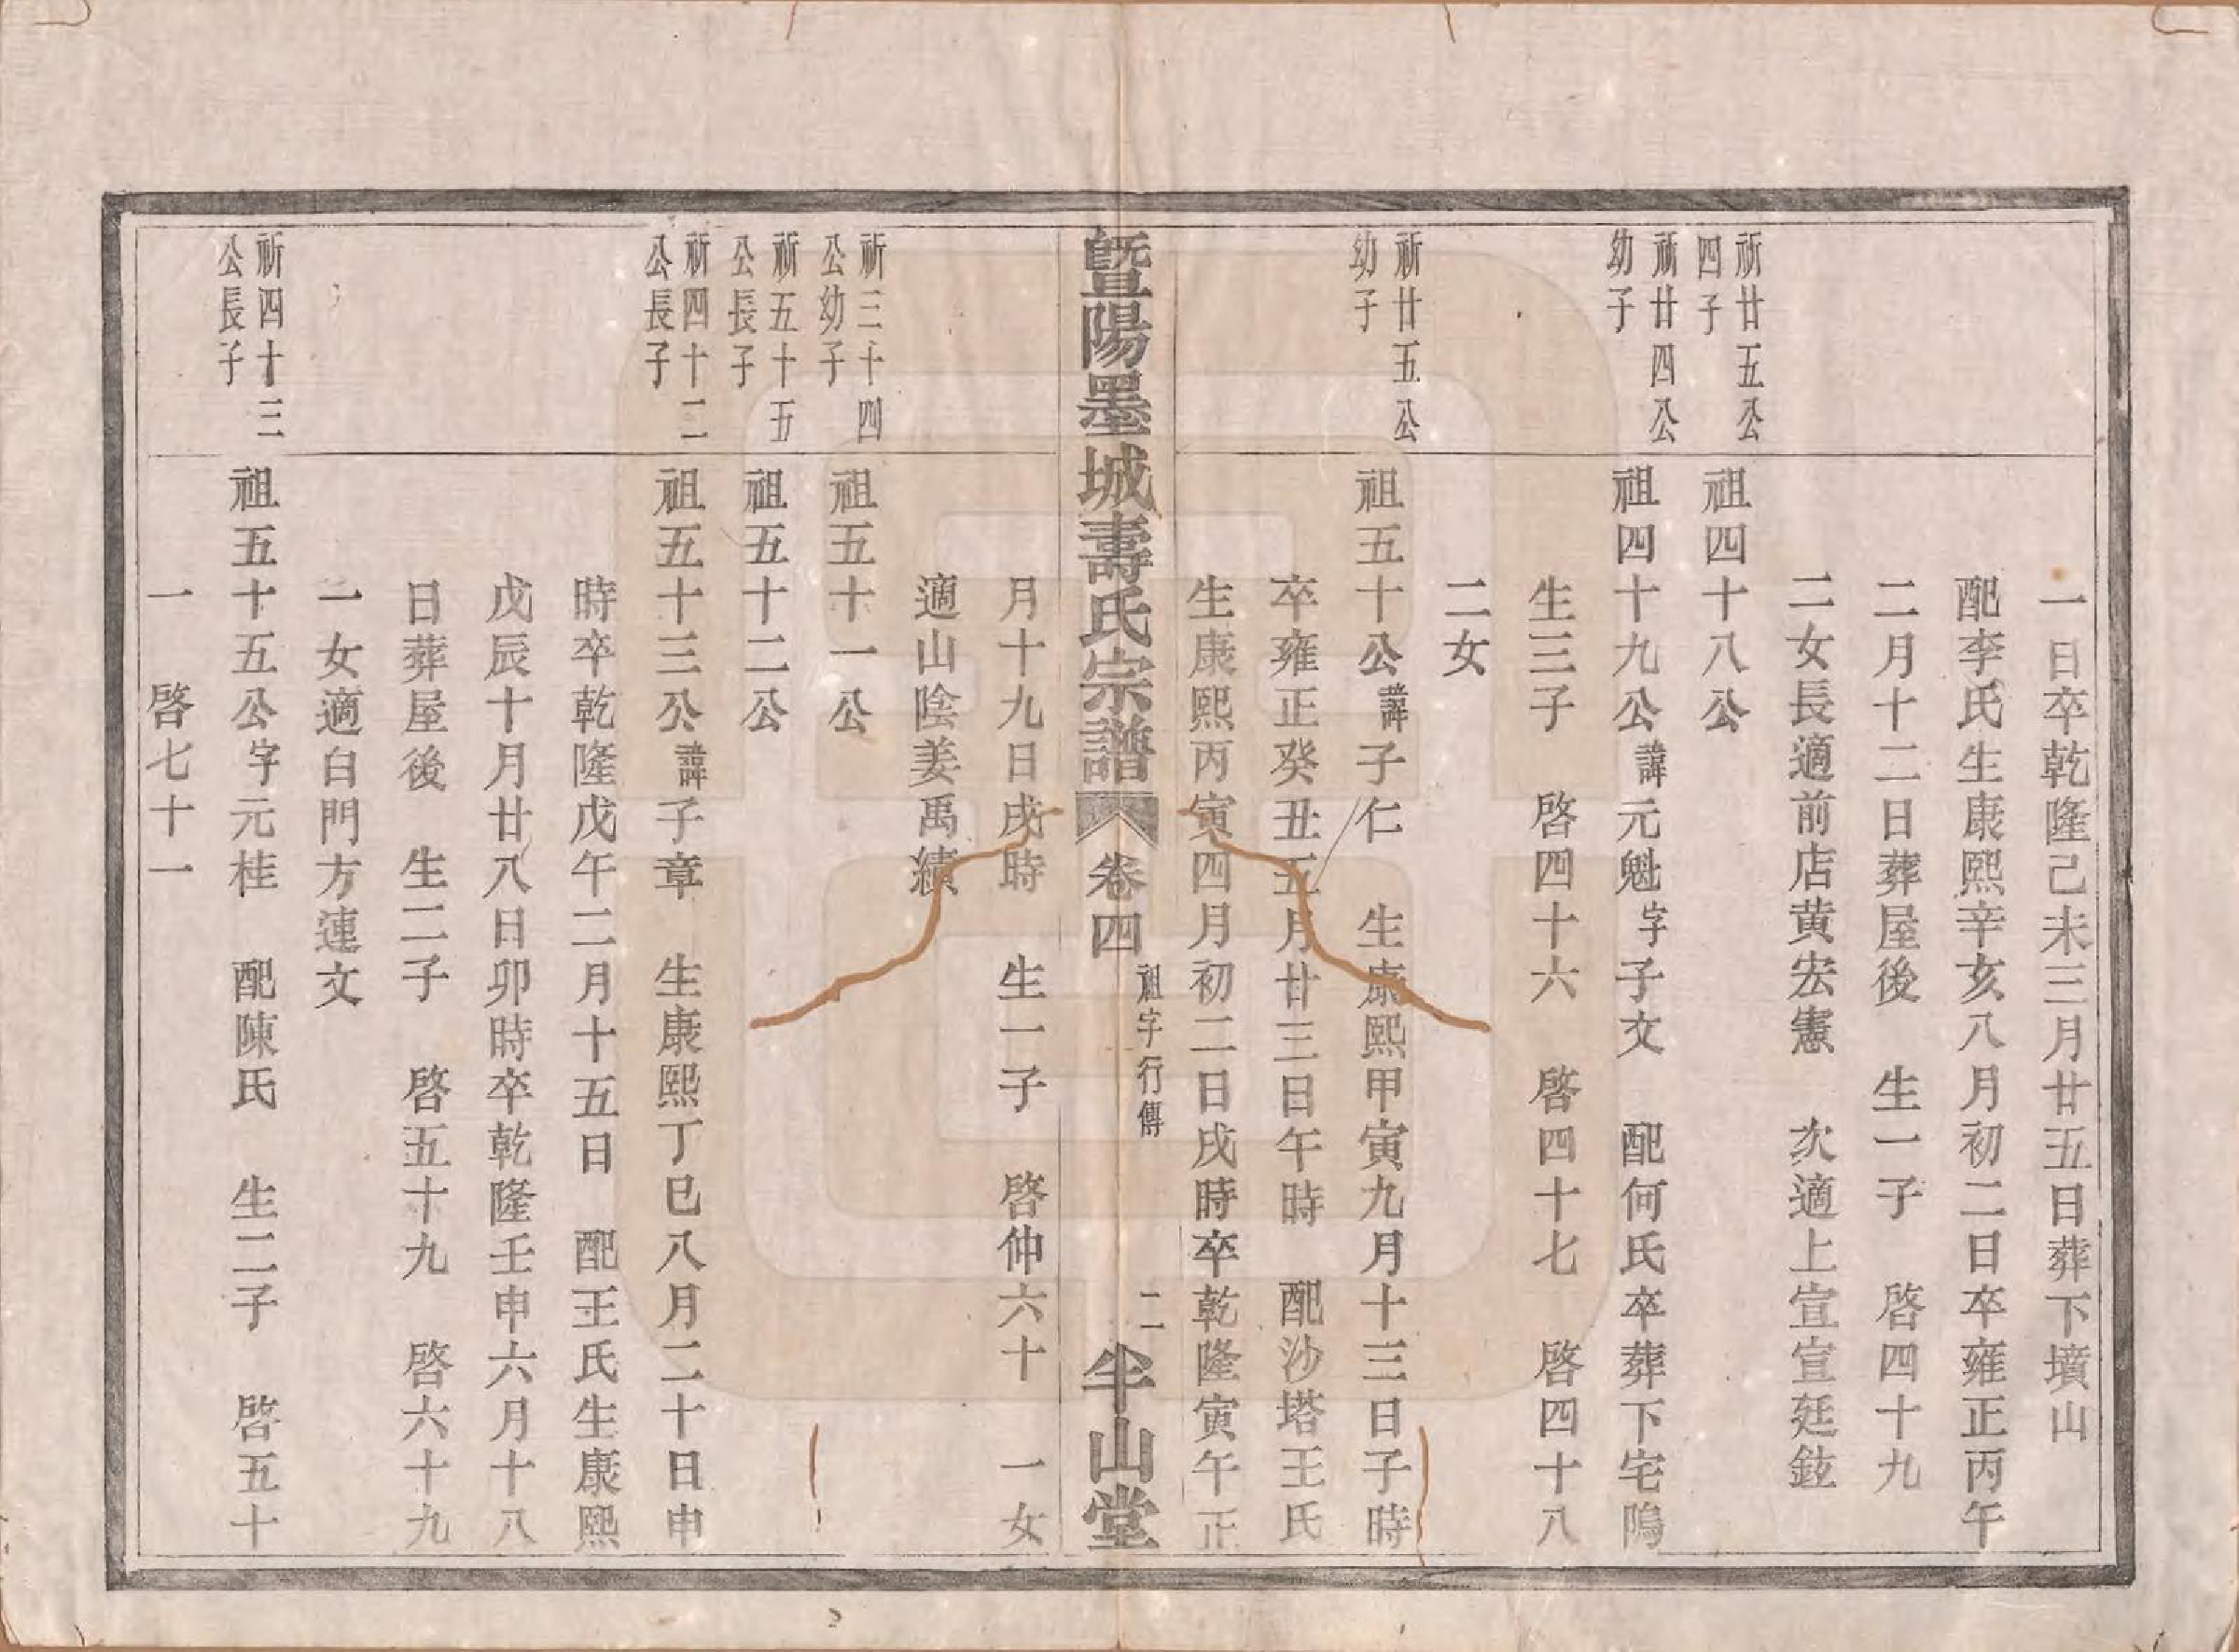 一日卒乾隆己未三月廿五日葬下墳山
配李氏生康熙辛亥八月初二日卒雍正丙午
二月十二日葬屋後　生一子　啓四十九
二女長適前店黄宏憲　次適上宣宣廷鉉
祈廿五公
四子
祖四十八公
祈廿四公
幼子
祖四十九公諱元魁字子文　配何氏卒葬下宅隖
生三子　啓四十六　啓四十七　啓四十八
二女
祈廿五公
幼子
祖五十公諱子仁　生康熙甲寅九月十三日子時
卒雍正癸丑五月廿三日午時　配沙塔王氏
生康熙丙寅四月初二日戌時卒乾隆寅午正
暨陽墨城壽氏宗譜　卷四　祖字行傳　二　半山堂
月十九日戌時　生一子　啓仲六十　一女
適山陰姜禹績
祈三十四
公幼子
祖五十一公
祈五十五
公長子
祖五十二公
祈四十二
公長子
祖五十三公諱子章　生康熙丁巳八月二十日申
時卒乾隆戊午二月十五日　配王氏生康熙
戊辰十月廿八日卯時卒乾隆壬申六月十八
日葬屋後　生二子　啓五十九　啓六十九
一女適白門方連文
祈四十三
公長子
祖五十五公字元桂　配陳氏　生二子　啓五十
一　啓七十一